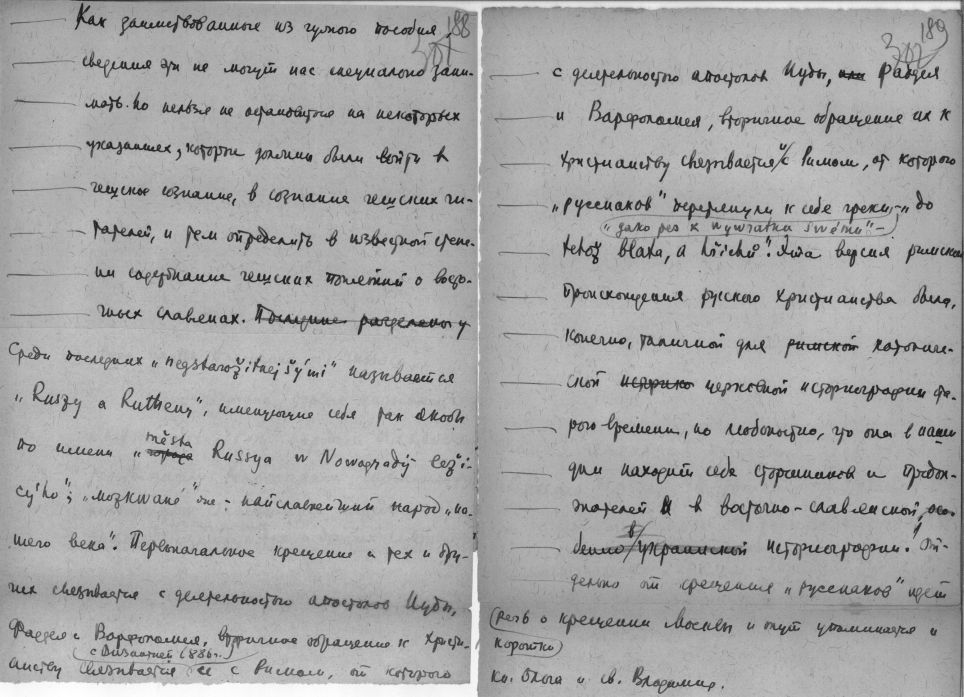 188
Как заимствованные из чужого пособия,
307
сведения эти не могут нас специально зани-
мать. Но нельзя не остановиться на некоторых
указаниях, которые должны были войти в
чешское сознание, в сознание чешских чи-
тателей, и тем определить в известной степе-
ни содержание чешских понятий о восто-
чных славянах.
Среди последних „negstarožitnejšými" называется
„Ruszy a Rutheny", именующие себя так якобы
по имени „
města
Russya w Nowogradÿ leží-
cýho"; „mozkwané" же - найславнейший народ „на-
шего века". Первоначальное крещение и тех и дру-
гих связывается с деятельностью апостолов Иуды,
Фаддея и Варфоломея, вторичное обращение к христи-
с Византией (886 г.)
анству связывается с Римом, от которого
189
307
с деятельностью апостолов Иуды, Фаддея
и Варфоломея, вторичное обращение их к
христианству связывается с Римом, от которого
„русснаков" перетянули к себе греки, „до
„gako pes k wywratku swému" –
tehož bláta, a hřichů". Эта версия римском
происхождения русского христианства была,
конечно, типичной для католиче-
ской церковной историографии ста-
рого времени, но любопытно, что она в наши
дни находит себе сторонников и продол-
жателей в восточно-славянской,
историографии. От-
дельно от крещения „русснаков" идет
речь о крещении Москвы и тут упоминается и
коротко
кн. Ольга и св. Владимир.